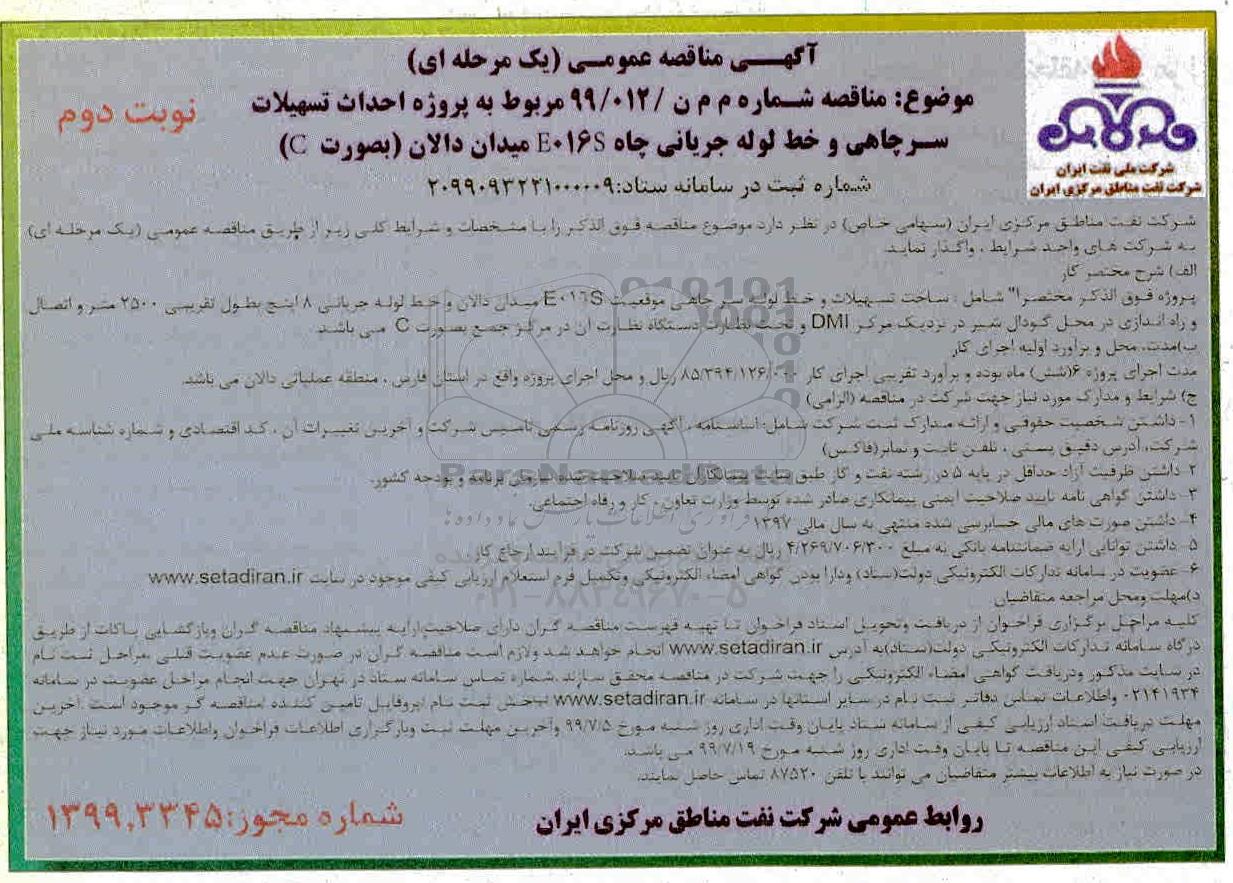 آگهی مناقصه عمومی (یک مرحله ای)
موضوع: مناقصه شماره م م ن /۹۹/۰۱۲ مربوط به پروژه احداث تسهیلات
سرچاهی و خط لوله جریانی چاه E۰۱۶S میدان دالان (بصورت C)
نوبت دوم
شماره ثبت در سامانه ستاد:۲۰۹۹۰۹۳۲۲۱۰۰۰۰۰۹
شرکت ملی نفت ایران
شرکت نفت مناطق مرکزی ایران
شرکت نفت مناطق مرکزی ایران (سهامی خاص) در نظر دارد موضوع مناقصه فوق الذکر را با مشخصات و شرایط کلی زیر از طریق مناقصه عمومی (یک مرحله ای)
به شرکت های واجد شرایط ، واگذار نماید.
الف) شرح مختصر کار
پروژه فوق الذکر مختصرا" شامل : ساخت تسهیلات و خط لوله سر چاهی موقعیت E۰۱٦S میدان دالان و خط لوله جریانی ۸ اینچ بطول تقریبی ۲۵۰۰ متر و اتصال
و راه اندازی در محل گودال شیر در نزدیک مرکز DMI و تحت نظارت دستگاه نظارت آن در مرکز جمع بصورت C می باشد.
ب)مدت، محل و برآورد اولیه اجرای کار
مدت اجرای پروژه ۶(شش) ماه بوده و برآورد تقریبی اجرای کار ۸۵/۳۹۴/۱۲۶/۰۰۰ ریال و محل اجرای پروژه واقع در استان فارس ، منطقه عملیاتی دالان می باشد.
ج) شرایط و مدارک مورد نیاز جهت شرکت در مناقصه (الزامی)
۱- داشتن شخصیت حقوقی و ارائه مدارک ثبت شرکت شامل: اساسنامه ، آگهی روزنامه رسمی تاسیس شرکت و آخرین تغییرات آن ، کد اقتصادی و شماره شناسه ملی
شرکت، آدرس دقیق پستی ، تلفن ثابت و نمابر(فاکس)
۲ داشتن ظرفیت آزاد حداقل در پایه ۵ در رشته نفت و گاز طبق سایت پیمانکاران تایید صلاحیت شده سازمان برنامه و بودجه کشور.
۳- داشتن گواهی نامه تایید صلاحیت ایمنی پیمانکاری صادر شده توسط وزارت تعاون ، کار و رفاه اجتماعی.
۴- داشتن صورت های مالی حسابرسی شده منتهی به سال مالی ۱۳۹۷
۵- داشتن توانایی ارایه ضمانتنامه بانکی به مبلغ ۴/۲۶۹/۷۰۶/۳۰۰ ریال به عنوان تضمین شرکت در فرآیند ارجاع کار
۶- عضویت در سامانه تدارکات الکترونیکی دولت(ستاد) ودارا بودن گواهی امضاء الکترونیکی وتکمیل فرم استعلام ارزیابی کیفی موجود در سایت www.setadiran.ir
د)مهلت ومحل مراجعه متقاضیان
کلیه مراحل برگزاری فراخوان از دریافت وتحویل اسناد فراخوان تا تهیه فهرست مناقصه گران دارای صلاحیت،ارایه پیشنهاد مناقصه گران وبازگشایی پاکات از طریق
درگاه سامانه تدارکات الکترونیکی دولت(ستاد)به آدرس www.setadiran.ir انجام خواهد شد ولازم است مناقصه گران در صورت عدم عضویت قبلی ،مراحل ثبت نام
در سایت مذکور ودریافت گواهی امضاء الکترونیکی را جهت شرکت در مناقصه محقق سازند .شماره تماس سامانه ستاد در تهران جهت انجام مراحل عضویت در سامانه
۰۲۱۴۱۹۳۴ واطلاعات تماس دفاتر ثبت نام در سایر استانها در سامانه www.setadiran.ir بخش ثبت نام /پروفایل تامین کننده /مناقصه گر موجود است .آخرین
مهلت دریافت اسناد ارزیابی کیفی از سامانه ستاد پایان وقت اداری روز شنبه مورخ ۹۹/۷/۵ وآخرین مهلت ثبت وبارگزاری اطلاعات فراخوان واطلاعات مورد نیاز جهت
ارزیابی کیفی این مناقصه تا پایان وقت اداری روز شنبه مورخ ۹۹/۷/۱۹ می باشد.
در صورت نیاز به اطلاعات بیشتر متقاضیان می توانند با تلفن ۸۷۵۲۰ تماس حاصل نمایند.
روابط عمومی شرکت نفت مناطق مرکزی ایران
شماره مجوز:۱۳۹۹.۳۳۴۵
ParsNamadData
۰۲۱-۸۸۳۴۹۶۷۰-۵